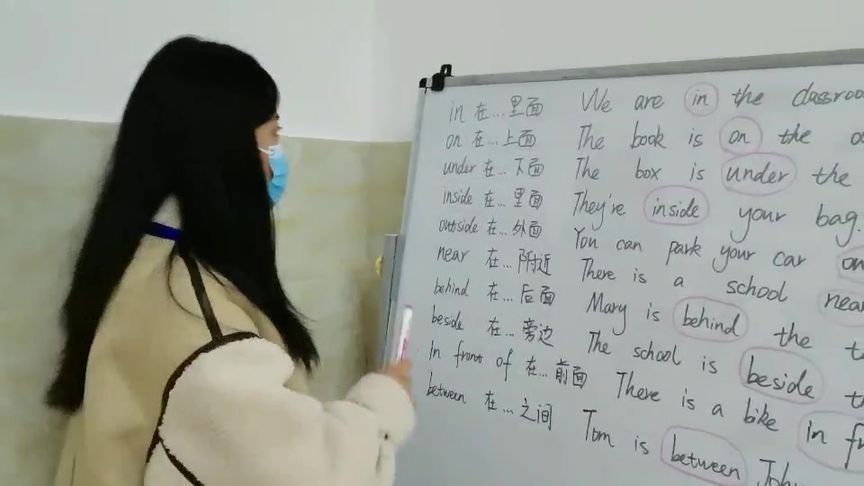 in 在...里面 We are in the
on 在...上面 The book is on the
under 在...下面 The box is under the
inside 在...里面 They're inside your bag.
outside 在...外面 You can park your car
near 在...附近 There is a school near
behind 在...后面 Mary is behind the
beside 在...旁边 The school is beside the
In front of 在...前面 There is a bike in
between 在...之间 Tom is between